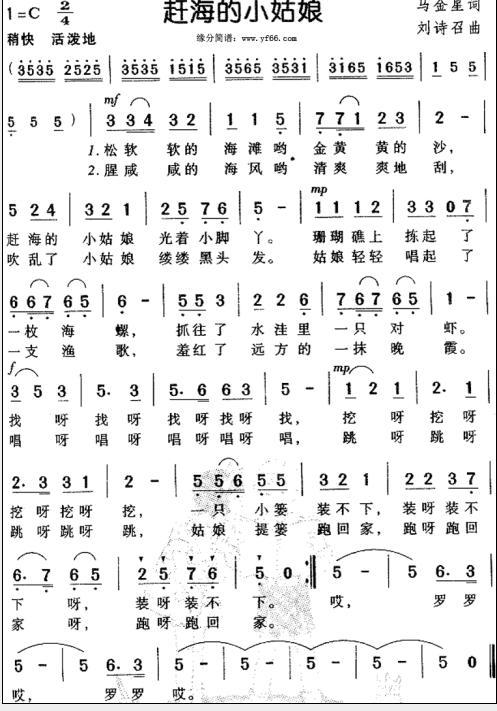 赶海的小姑娘
1=C 2/4
马金星词
稍快 活泼地
缘分简谱：www.yf66.com
刘诗召曲
(3535 2525 | 3535 1515 | 3565 3531 | 3165 1653 | 1 5 5
mf
5 5 5 ) | 3 34 3 2 | 1 1 5 | 7 71 2 3 | 2 - |
1.松软 软的 海滩哟 金黄 黄的 沙，
2.腥咸 咸的 海风哟 清爽 爽地 刮，
mp
5 2 4 | 3 2 1 | 2 5 7 6 | 5 - | 1 1 1 2 | 3 3 0 7 |
赶海的 小姑娘 光着小脚 丫。 珊瑚礁上 拣起了
吹乱了 小姑娘 缕缕黑头 发。 姑娘轻轻 唱起了
6 67 6 5 | 6 - | 5 5 3 | 2 2 6 | 7 67 6 5 | 1 - |
一枚海 螺， 抓往了 水洼里 一只对 虾。
一支渔 歌， 羞红了 远方的 一抹晚 霞。
f
mp
3 5 3 | 5. 3 | 5. 6 6 3 | 5 - | 1 2 1 | 2. 1 |
找 呀 找呀 找呀找呀 找， 挖 呀 挖呀
唱 呀 唱呀 唱呀唱呀 唱， 跳 呀 跳呀
2. 3 3 1 | 2 - | 5 56 5 5 | 3 2 1 | 2 2 3 7 |
挖呀挖呀 挖， 一只 小篓 装不下，装呀装不
跳呀跳呀 跳， 姑娘 提篓 跑回家，跑呀跑回
6. 7 6 5 | 2 5 7 6 | 5 0 :| 5 - | 5 - | 6. 3 |
下 呀， 装呀装不 下。 哎， 罗罗
家 呀， 跑呀跑回 家。
5 - | 5 - | 6. 3 | 5 - | 5 - | 5 - | 5 0 ‖
哎， 罗罗 哎。